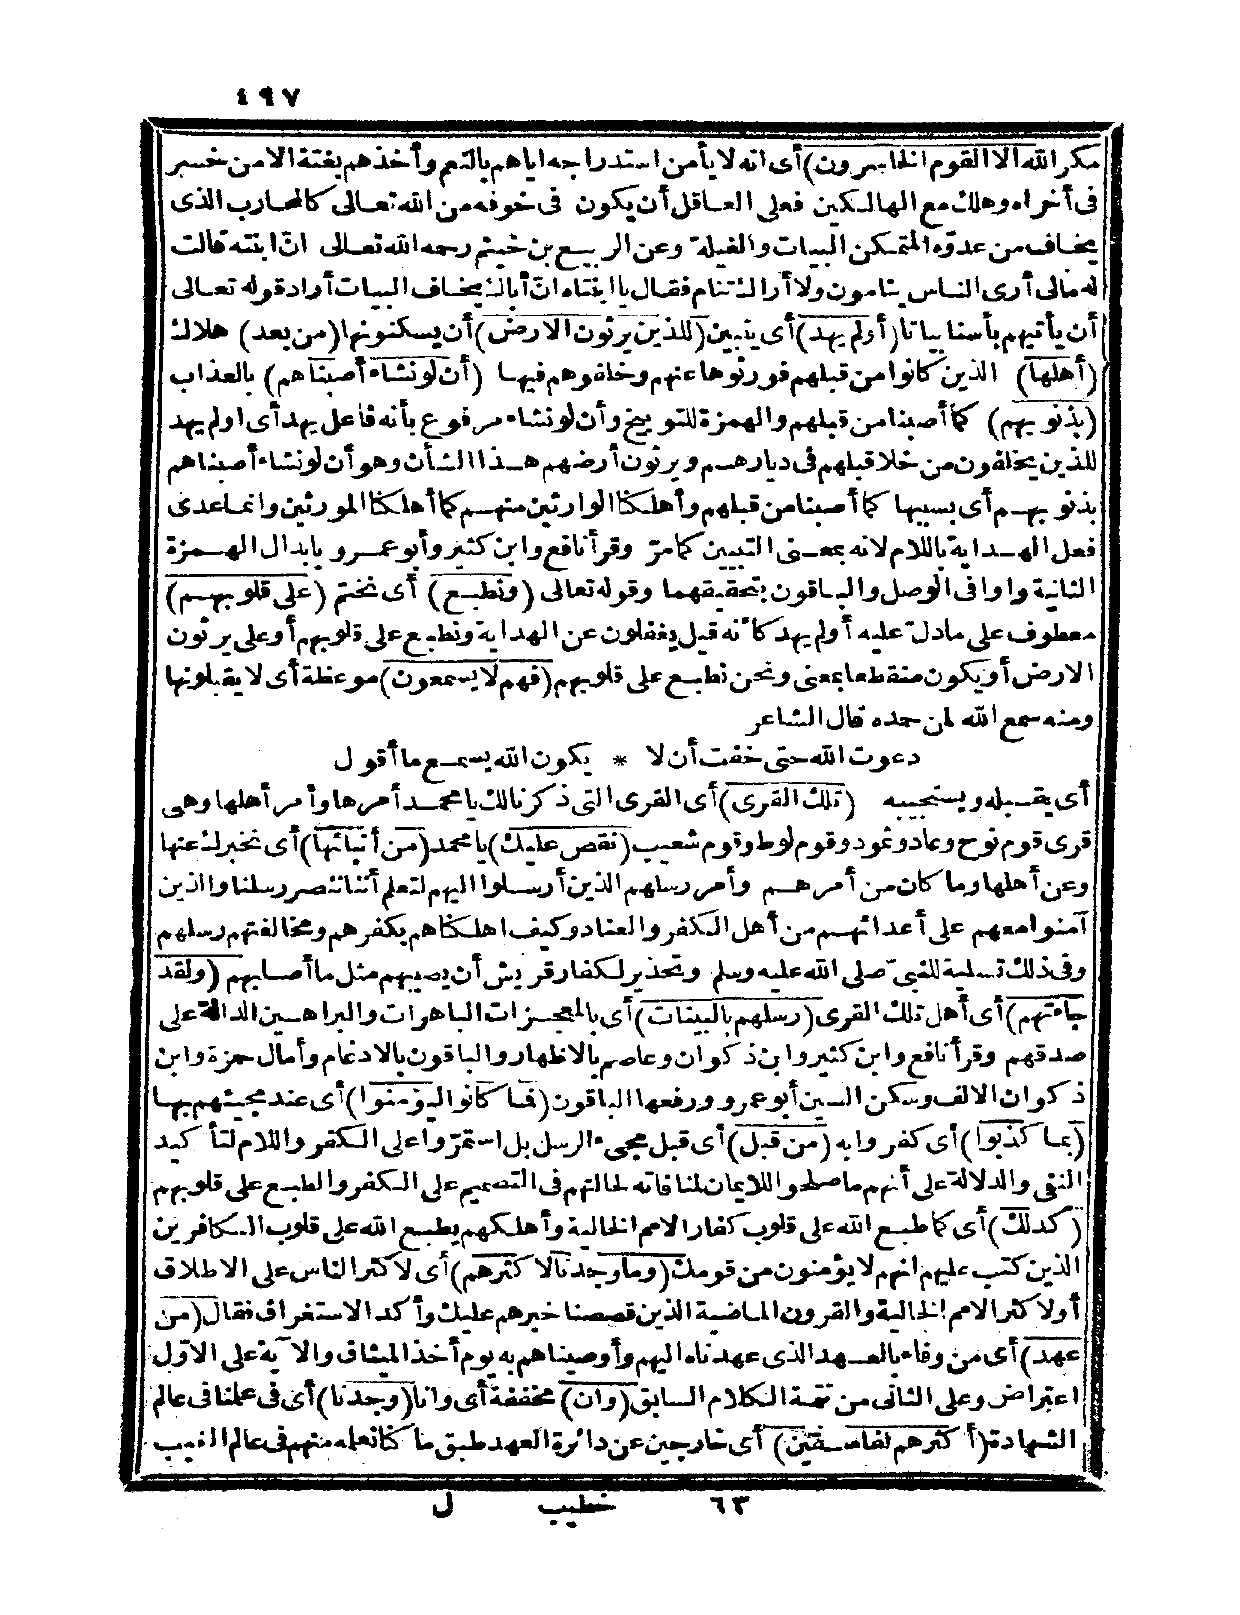 ٤٩٧
مكر الله الا القوم الخاسرون) أى انه لا يأمن استدراجه اياهم بالنعم وأخذهم بغتة الا من خسر
فى أخراه وهلك مع الهالكين فعلى العاقل أن يكون فى خوفه من الله تعالى كالمحارب الذى
يخاف من عدوّه المتمكن البيات والغيلة وعن الربيع بن خيثم رحمه الله تعالى انّ ابنته قالت
له مالى أرى الناس ينامون ولا أراك تنام فقال يا ابنتاه انّ أباك يخاف البيات أراد قوله تعالى
أن يأتيهم بأسنا بياتا (أولم يهد) أى يتبين (للذين يرثون الارض) أن يسكنونها (من بعد) هلاك
(أهلها) الذين كانوا من قبلهم فورثوها عنهم وخلفوهم فيها (أن لو نشاء أصبناهم) بالعذاب
(بذنوبهم) كما أصبنا من قبلهم والهمزة للتوبيخ وأن لو نشاء مرفوع بأنه فاعل يهد أى اولم يهد
للذين يخلفون من خلا قبلهم فى ديارهم ويرثون أرضهم هذا الشأن وهو أن لو نشاء أصبناهم
بذنوبهم أى بسببها كما أصبنا من قبلهم وأهلكنا الوارثين منهم كما أهلكنا المورثين وانما عدى
فعل الهداية باللام لانه بمعنى التبيين كما مرّ وقرأ نافع وابن كثير وأبو عمرو بابدال الهمزة
الثانية واوا فى الوصل والباقون بتحقيقهما وقوله تعالى (ونطبع) أى نختم (على قلوبهم)
معطوف على ما دلّ عليه أولم يهد كأنه قيل يغفلون عن الهداية ونطبع على قلوبهم أو على يرثون
الارض أو يكون منقطعا بمعنى ونحن نطبع على قلوبهم (فهم لا يسمعون) موعظة أى لا يقبلونها
ومنه سمع الله لمن حمده قال الشاعر
دعوت الله حتى خفت أن لا * يكون الله يسمع ما أقول
أى يقبله ويستجيبه (تلك القرى) أى القرى التى ذكرنا لك يا محمد أمرها وأمر أهلها وهى
قرى قوم نوح وعاد وثمود وقوم لوط وقوم شعيب (نقص عليك) يا محمد (من أنبائها) أى نخبرك عنها
وعن أهلها وما كان من أمرهم وأمر رسلهم الذين أرسلوا اليهم لتعلم أننا ننصر رسلنا والذين
آمنوا معهم على أعدائهم من أهل الكفر والعناد وكيف اهلكناهم بكفرهم ومخالفتهم رسلهم
وفى ذلك تسلية للنبىّ صلى الله عليه وسلم وتحذير لكفار قريش أن يصيبهم مثل ما أصابهم (ولقد
جاءتهم) أى أهل تلك القرى (رسلهم بالبينات) أى بالمعجزات الباهرات والبراهين الدالة على
صدقهم وقرأ نافع وابن كثير وابن ذكوان وعاصم بالاظهار والباقون بالادغام وأمال حمزة وابن
ذكوان الالف وسكن السين أبو عمرو ورفعها الباقون (فما كانوا ليؤمنوا) أى عند مجيئهم بها
(بما كذبوا) أى كفروا به (من قبل) أى قبل مجىء الرسل بل استمرّوا على الكفر واللام لتأكيد
النفى والدلالة على أنهم ما صلحوا للايمان لمنافاته لحالتهم فى التصميم على الكفر والطبع على قلوبهم
(كذلك) أى كما طبع الله على قلوب كفار الامم الخالية وأهلكهم يطبع الله على قلوب الكافرين
الذين كتب عليهم انهم لا يؤمنون من قومك (وما وجدنا لاكثرهم) أى لاكثر الناس على الاطلاق
أو لاكثر الامم الخالية والقرون الماضية الذين قصصنا خبرهم عليك وأكد الاستغراق فقال (من
عهد) أى من وفاء بالعهد الذى عهدناه اليهم وأوصيناهم به يوم أخذ الميثاق والآية على الاوّل
اعتراض وعلى الثانى من تتمة الكلام السابق (وان) مخففة أى وانا (وجدنا) أى فى علمنا فى عالم
الشهادة (أكثرهم لفاسقين) أى خارجين عن دائرة العهد طبق ما كنا نعلمه منهم فى عالم الغيب
٦٣ خطيب ل